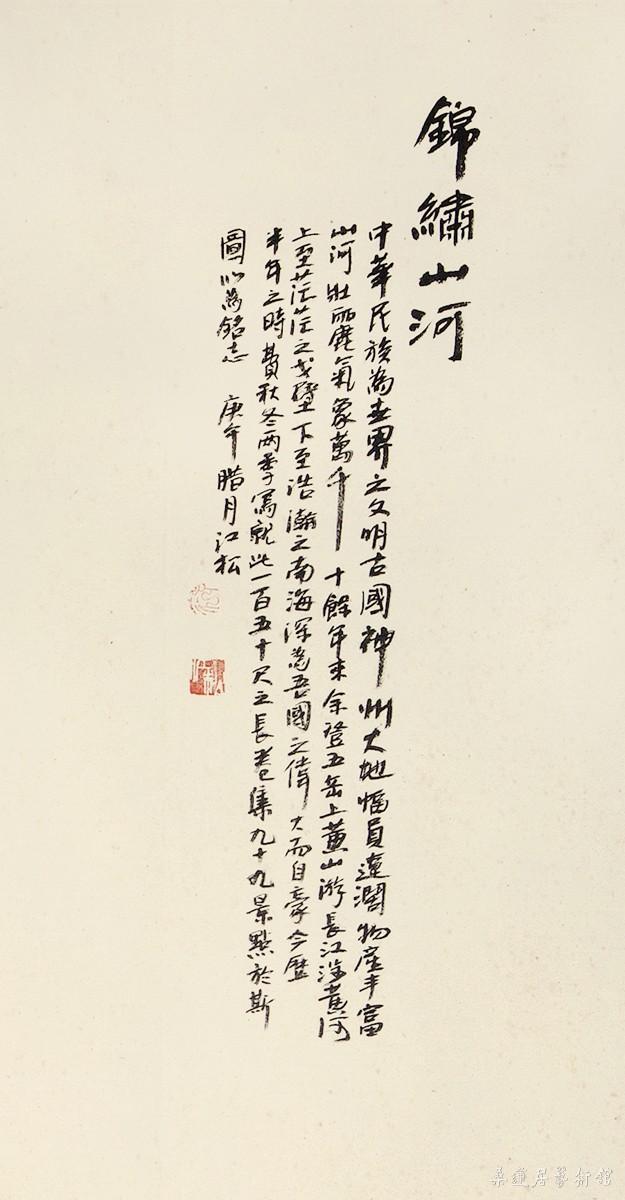 錦繡山河
中華民族為世界之文明古國神州大地幅員遼濶物產丰富
山河壯丽氣象萬千十餘年來余登五岳上黄山游長江涉黄河
上至茫茫之戈壁下至浩瀚之南海深為吾國之偉大而自豪今歷
半年之時費秋冬两季寫就此一百五十尺之長卷集九十九景點於斯
圖以為銘志 庚午腊月江松
桑蓮居藝術館